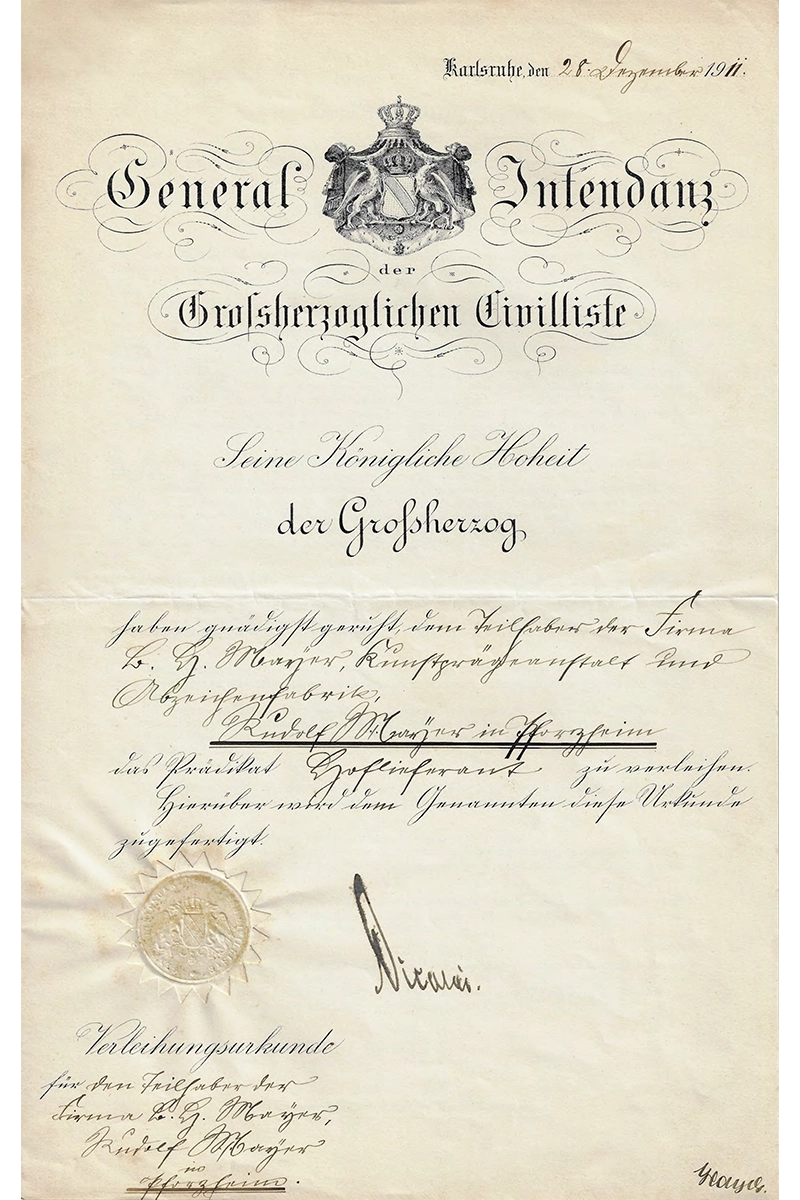 Karlsruhe, den 28. Dezember 1911.
General Intendanz
der
Grossherzoglichen Civilliste
Seine Königliche Hoheit
der Großherzog
haben gnädigst geruht, dem Teilhaber der Firma
B. H. Mayer, Kunstprägeanstalt und
Abzeichenfabrik,
Rudolf Mayer in Pforzheim
das Prädikat Hoflieferant zu verleihen.
Hierüber wird dem Genannten diese Urkunde
zugefertigt.
Nicolai.
Verleihungsurkunde
für den Teilhaber der
Firma B. H. Mayer,
Rudolf Mayer
in
Pforzheim.